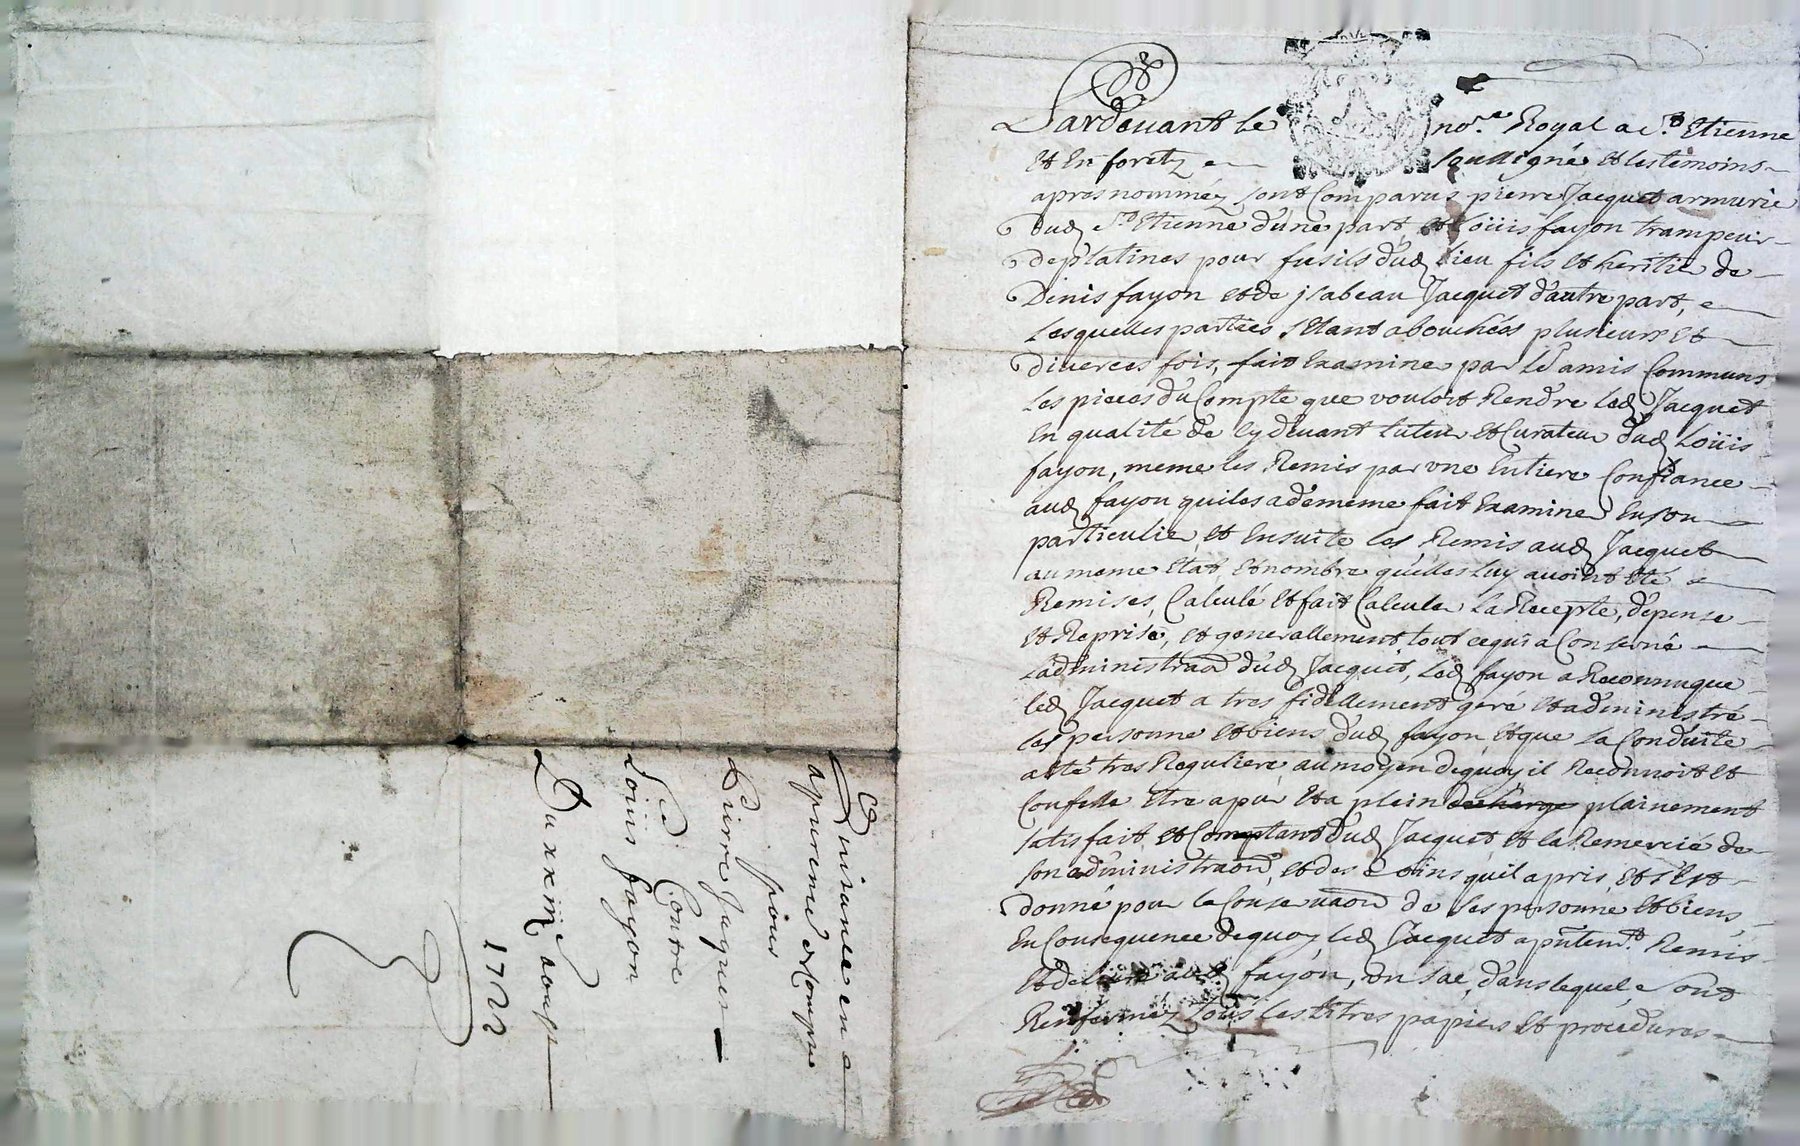 Pardevant le no.re Royal a S.t Etienne
Et En foretz soussigné et les temoins
apres nommez sont Comparus pierre Jacquet armurie
dud S.t Etienne d'une part, et Loüis fayon trampeur
de platines pour fusils dud lieu fils et heritie de
Denis fayon et de jsabeau Jacquet d'autre part,
Lesquelles parties s'Etant abouchées plusieurs et
diverces fois, fait Examiner par Le amis Communs
Les pieces du Compte que vouloit Rendre led Jacquet
En qualité de cy devant tuteur et Curateur dud Loüis
fayon, meme les Remis par une Entiere Confiance
aud fayon qui les a de meme fait Examiner En son
particulie, et Ensuite les Remis aud Jacquet
au meme Etat, et nombre qu'elles Luy avoint Eté
Remises, Calculé et fait Calculer La Recepte, depense
et Reprise, et generallement tout ce qui a Conserné
L'administraõn dud Jacquet, Led fayon a Reconnu que
led Jacquet a tres fidellement geré et administré
les personne et biens dud fayon, et que La Conduite
a Eté tres Reguliere, au moyen de quoy il Reconnoit et
Confesse Etre apur Et a plein decharge plainement
satisfait et Comptant dud Jacquet et la Remercié de
son administraõn, et des soins qu'il a pris, et s'Est
donné pour la Conservaõn de ses personne et biens,
En Consequence de quoy led Jacquet a pñtem.t Remis
et delivré aud fayon, un sac, dans lequel sont
Renfermez tous les titres papiers et procedures
Quitance en
apurement de Compte
pour
Pierre Jaquet
Contre
Loüis fayon
Du xxiii.e aoust
1722